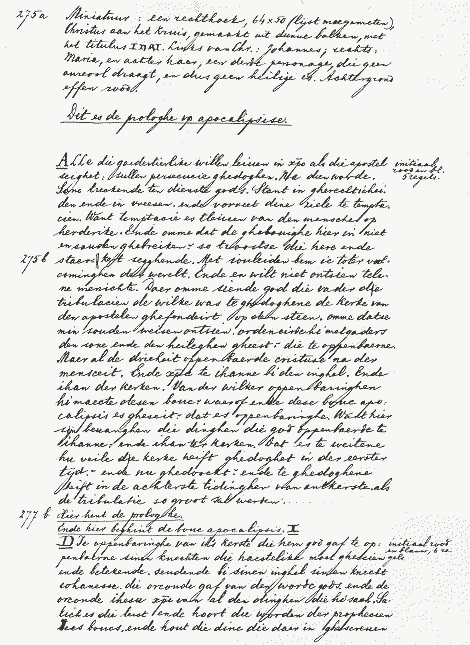 275a Miniatuur: een rechthoek, 64 x 50 (lijst meegemeten),
Christus aan het kruis, gemaakt uit dunne balken, met
het titulus INRI. Links van Chr.: Johannes; rechts:
Maria, en achter haar, een derde personage, die geen
aureool draagt, en dus geen heilige is. Achtergrond
effen rood.
Dit es de prologhe vp apocalipsise.
ALLe die goedertierlike willen leuen in xpo als die apostel initiaal,
seighet: sullen persecucie ghedoghen. Na dien worde. rood en bl.
Sone treckende ten dienste gods. Stant in gherechticheit 5 regels.
den ende in vreesen. ende voersiet dine ziele te tempta-
cien. Want temptacie es tleuen van den mensche op
herderike. Ende omme dat de ghelouighe hier in niet
en souden ghebreken: so troostse die here ende
275b staerct se segghende. Met v so ben ic toter vol-
comingher des werelt. Ende en wilt niet ontsien clei-
ne menichte. Daer omme siende god die vader die
tribulacien de wilke was te ghedoghene de kerke van
den apostelen ghefondeirt op den steen. omme datse
min souden weisen ontsien. ordeneirde hi metgaders
den sone ende den heileghen gheest: die te oppenbaerne.
Maer al de driehoit oppenbaerde cristuse na der
menscheit. Ende xpc te ihanne bi den inghel. Ende
ihan der kerken. Van der wilker oppenbaringhen
hi maecte desen bouc: waer of ende dese bouc apo-
calipsis es gheseit: dat es oppenbaringhe. Want hier
sijn beuanghen die dinghen die god oppenbaerde te
ihanne: ende ihan der kerken. Dat es te weitene
hu veile die kerke heift ghedoghet in der eerster
tijd: ende nu ghedoocht: ende te ghedoghene
heift in de achterste tidinghen van antkerste. als
de tribulatie so groot sal werden.
277b Hier hent de prologhe
Ende hier beghint de bouc apocalipsis. I
DIe oppenbaringhe van ihs kerste die hem god gaf te op- initiaal rood
penbaerne sinen knechten die haestelike moet ghescien en blauw, 6 re-
ende betekende. sendende bi sinen inghel sinen knecht gels
iohannesse. die orconde gaf van den worde gods ende de
orconde ihesu xpc van al den dinghen die hi sach. Sa-
lich es die leest ende hoort die worden der prophecien
des boucs. ende hout die dinc die daer in ghescreuen